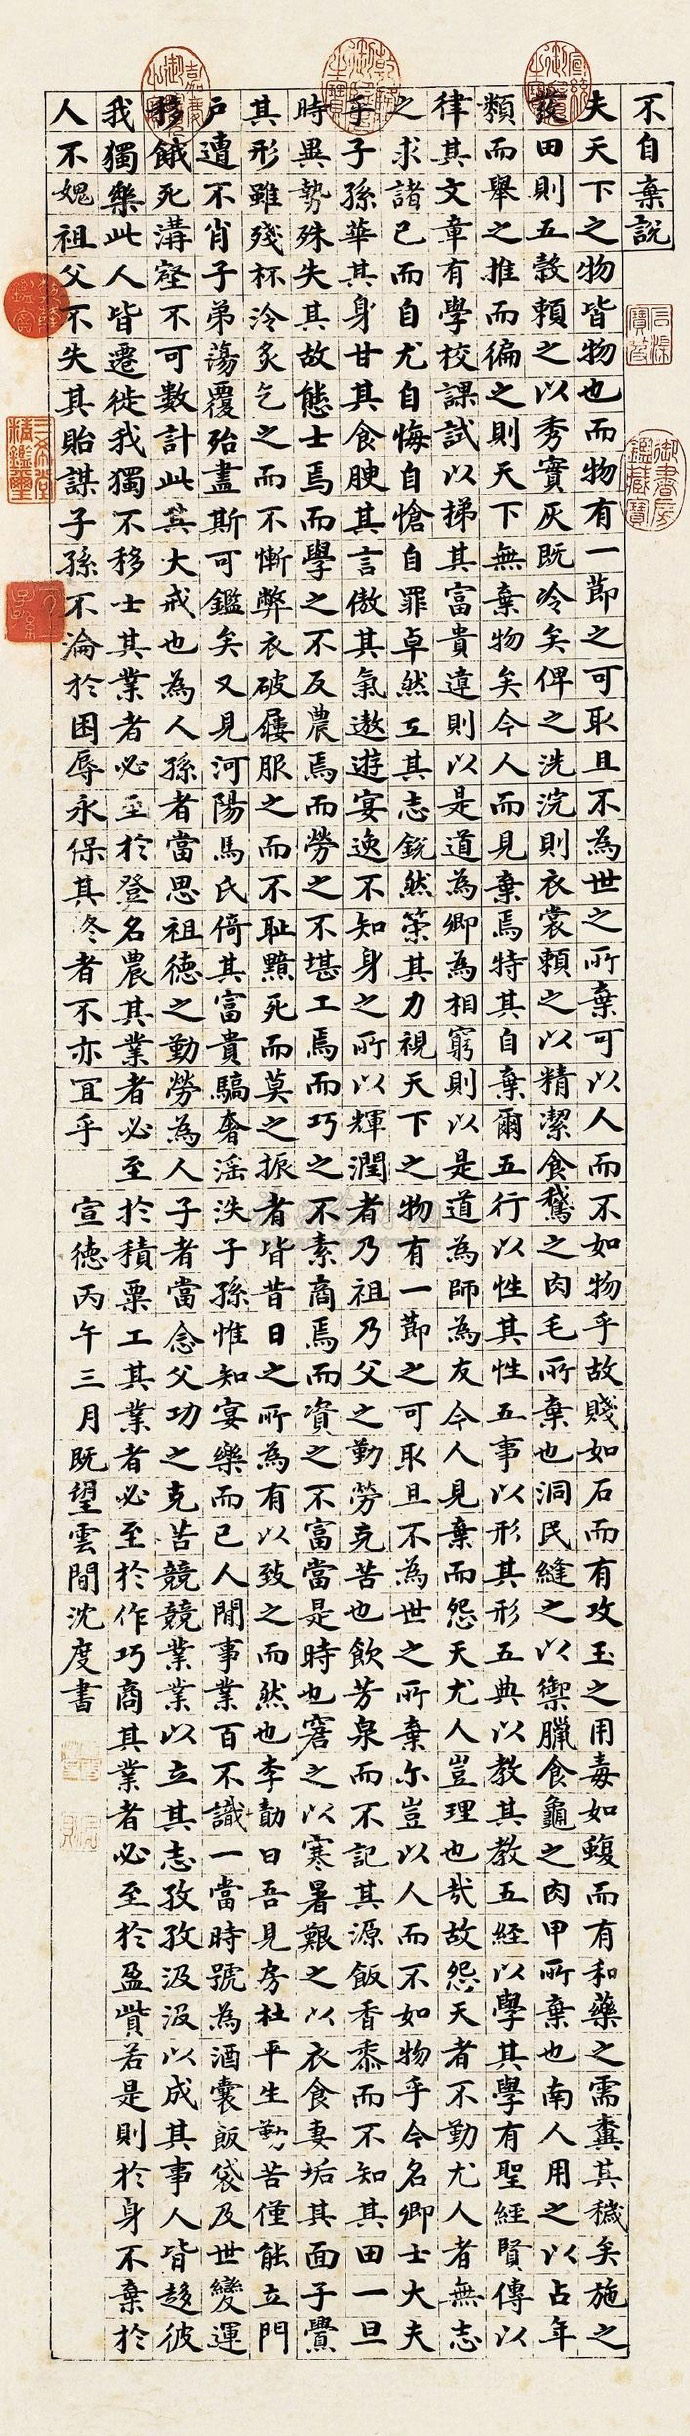 不自棄說
夫天下之物皆物也而物有一節之可取且不為世之所棄可以人而不如物乎故賤如石而有攻玉之用毒如蝮而有和藥之需糞其穢矣施之
田則五穀賴之以秀實灰既冷矣俾之洗浣則衣裳賴之以精潔食之肉毛所棄也洞民縫之以禦臘食龜之肉甲所棄也南人用之以占年
類而舉之推而徧之則天下無棄物矣今人而見棄焉特其自棄爾五行以性其性五事以形其形五典以教其教五經以學其學有聖經賢傳以
律其文章有學校課試以梯其富貴達則以是道為卿為相窮則以是道為師為友今人見棄而怨天尤人豈理也哉故怨天者不勤尤人者無志
之求諸己而自尤自悔自愴自罪卓然工其志銳然策其力視天下之物有一節之可取且不為世之所棄尔豈以人而不如物乎今名卿士大夫
乎子孫華其身甘其食腴其言傲其氣遨遊宴逸不知身之所以輝潤者乃祖乃父之勤勞克苦也飲芳泉而不記其源飯香黍而不知其田一旦
時異勢殊失其故態士焉而學之不反農焉而勞之不堪工焉而巧之不素商焉而資之不富當是時也窘之以寒暑艱之以衣食妻垢其面子釁
其形雖殘杯冷炙乞之而不慚弊衣破屨服之而不恥黯死而莫之振者皆昔日之所為有以致之而然也李勣曰吾見房杜平生勤苦僅能立門
戶遭不肖子弟蕩覆殆盡斯可鑑矣又見河陽馬氏倚其富貴驕奢淫泆子孫惟知宴樂而已人間事業百不識一當時號為酒囊飯袋及世變運
移餓死溝壑不可數計此其大戒也為人孫者當思祖德之勤勞為人子者當念父功之克苦競競業業以立其志孜孜汲汲以成其事人皆趍彼
我獨樂此人皆遷徙我獨不移士其業者必至於登名農其業者必至於積粟工其業者必至於作巧商其業者必至於盈貲若是則於身不棄於
人不媿祖父不失其貽謀子孫不淪於困辱永保其冬者不亦宜乎 宣德丙午三月既望雲間沈度書
三希堂精鑑璽
御書房鑑藏寶